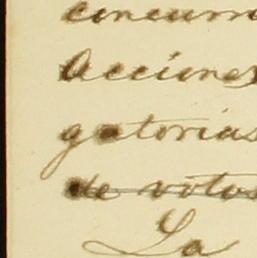 concurr
Acciones
gatorias
de votos
La